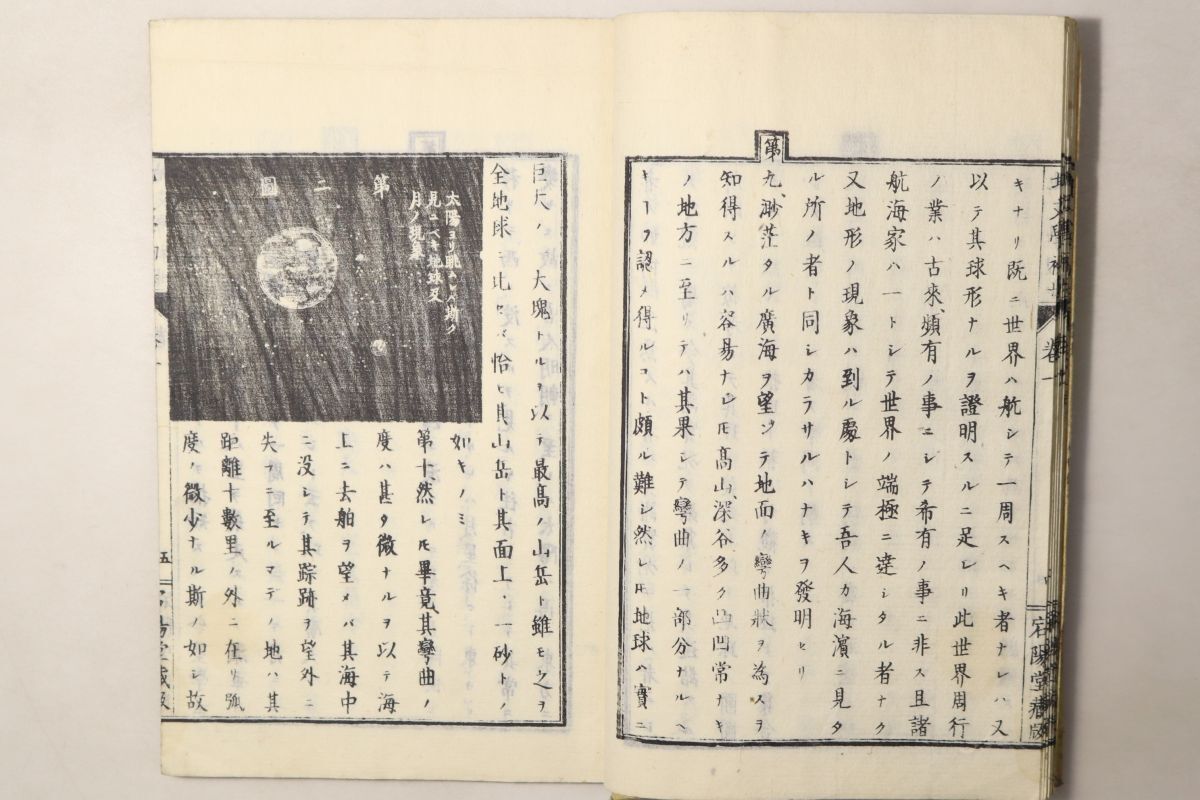 キナリ既ニ世界ハ航シテ一周スヘキ者ナレハ又
以テ其球形ナルヲ證明スルニ足レリ此世界周行
ノ業ハ古來頻有ノ事ニシテ希有ノ事ニ非ス且諸
航海家ハ一トシテ世界ノ端極ニ達シタル者ナク
又地形ノ現象ハ到ル處トシテ吾人カ海濱ニ見タ
ル所ノ者ト同シカラサルハナキヲ發明セリ
第九、渺茫タル廣海ヲ望ンテ地面ノ彎曲狀ヲ為スヲ
知得スルハ容易ナレ𪜈高山、深谷多ク凸凹常ナキ
ノ地方ニ至リテハ其果シテ彎曲ノ一部分ナルヘ
キヿヲ認メ得ルコト頗ル難シ然レ𪜈地球ハ實ニ
巨大ノ大塊ナルヲ以テ最高ノ山岳ト雖モ之ヲ
全地球ニ比セハ恰モ其山岳ト其面上ノ一砂トノ
如キノミ
第二圖
太陽ヨリ
月ノ現象
第十、然レ𪜈畢竟其彎曲ノ
度ハ甚タ微ナルヲ以テ海
上ニ去舶ヲ望メバ其海中
ニ没シテ其踪跡ヲ望外ニ
失フニ至ルマテノ地ハ其
距離十數里ノ外ニ在リ弧
度ノ微少ナル斯ノ如シ故
卷一
宕陽堂藏版
五